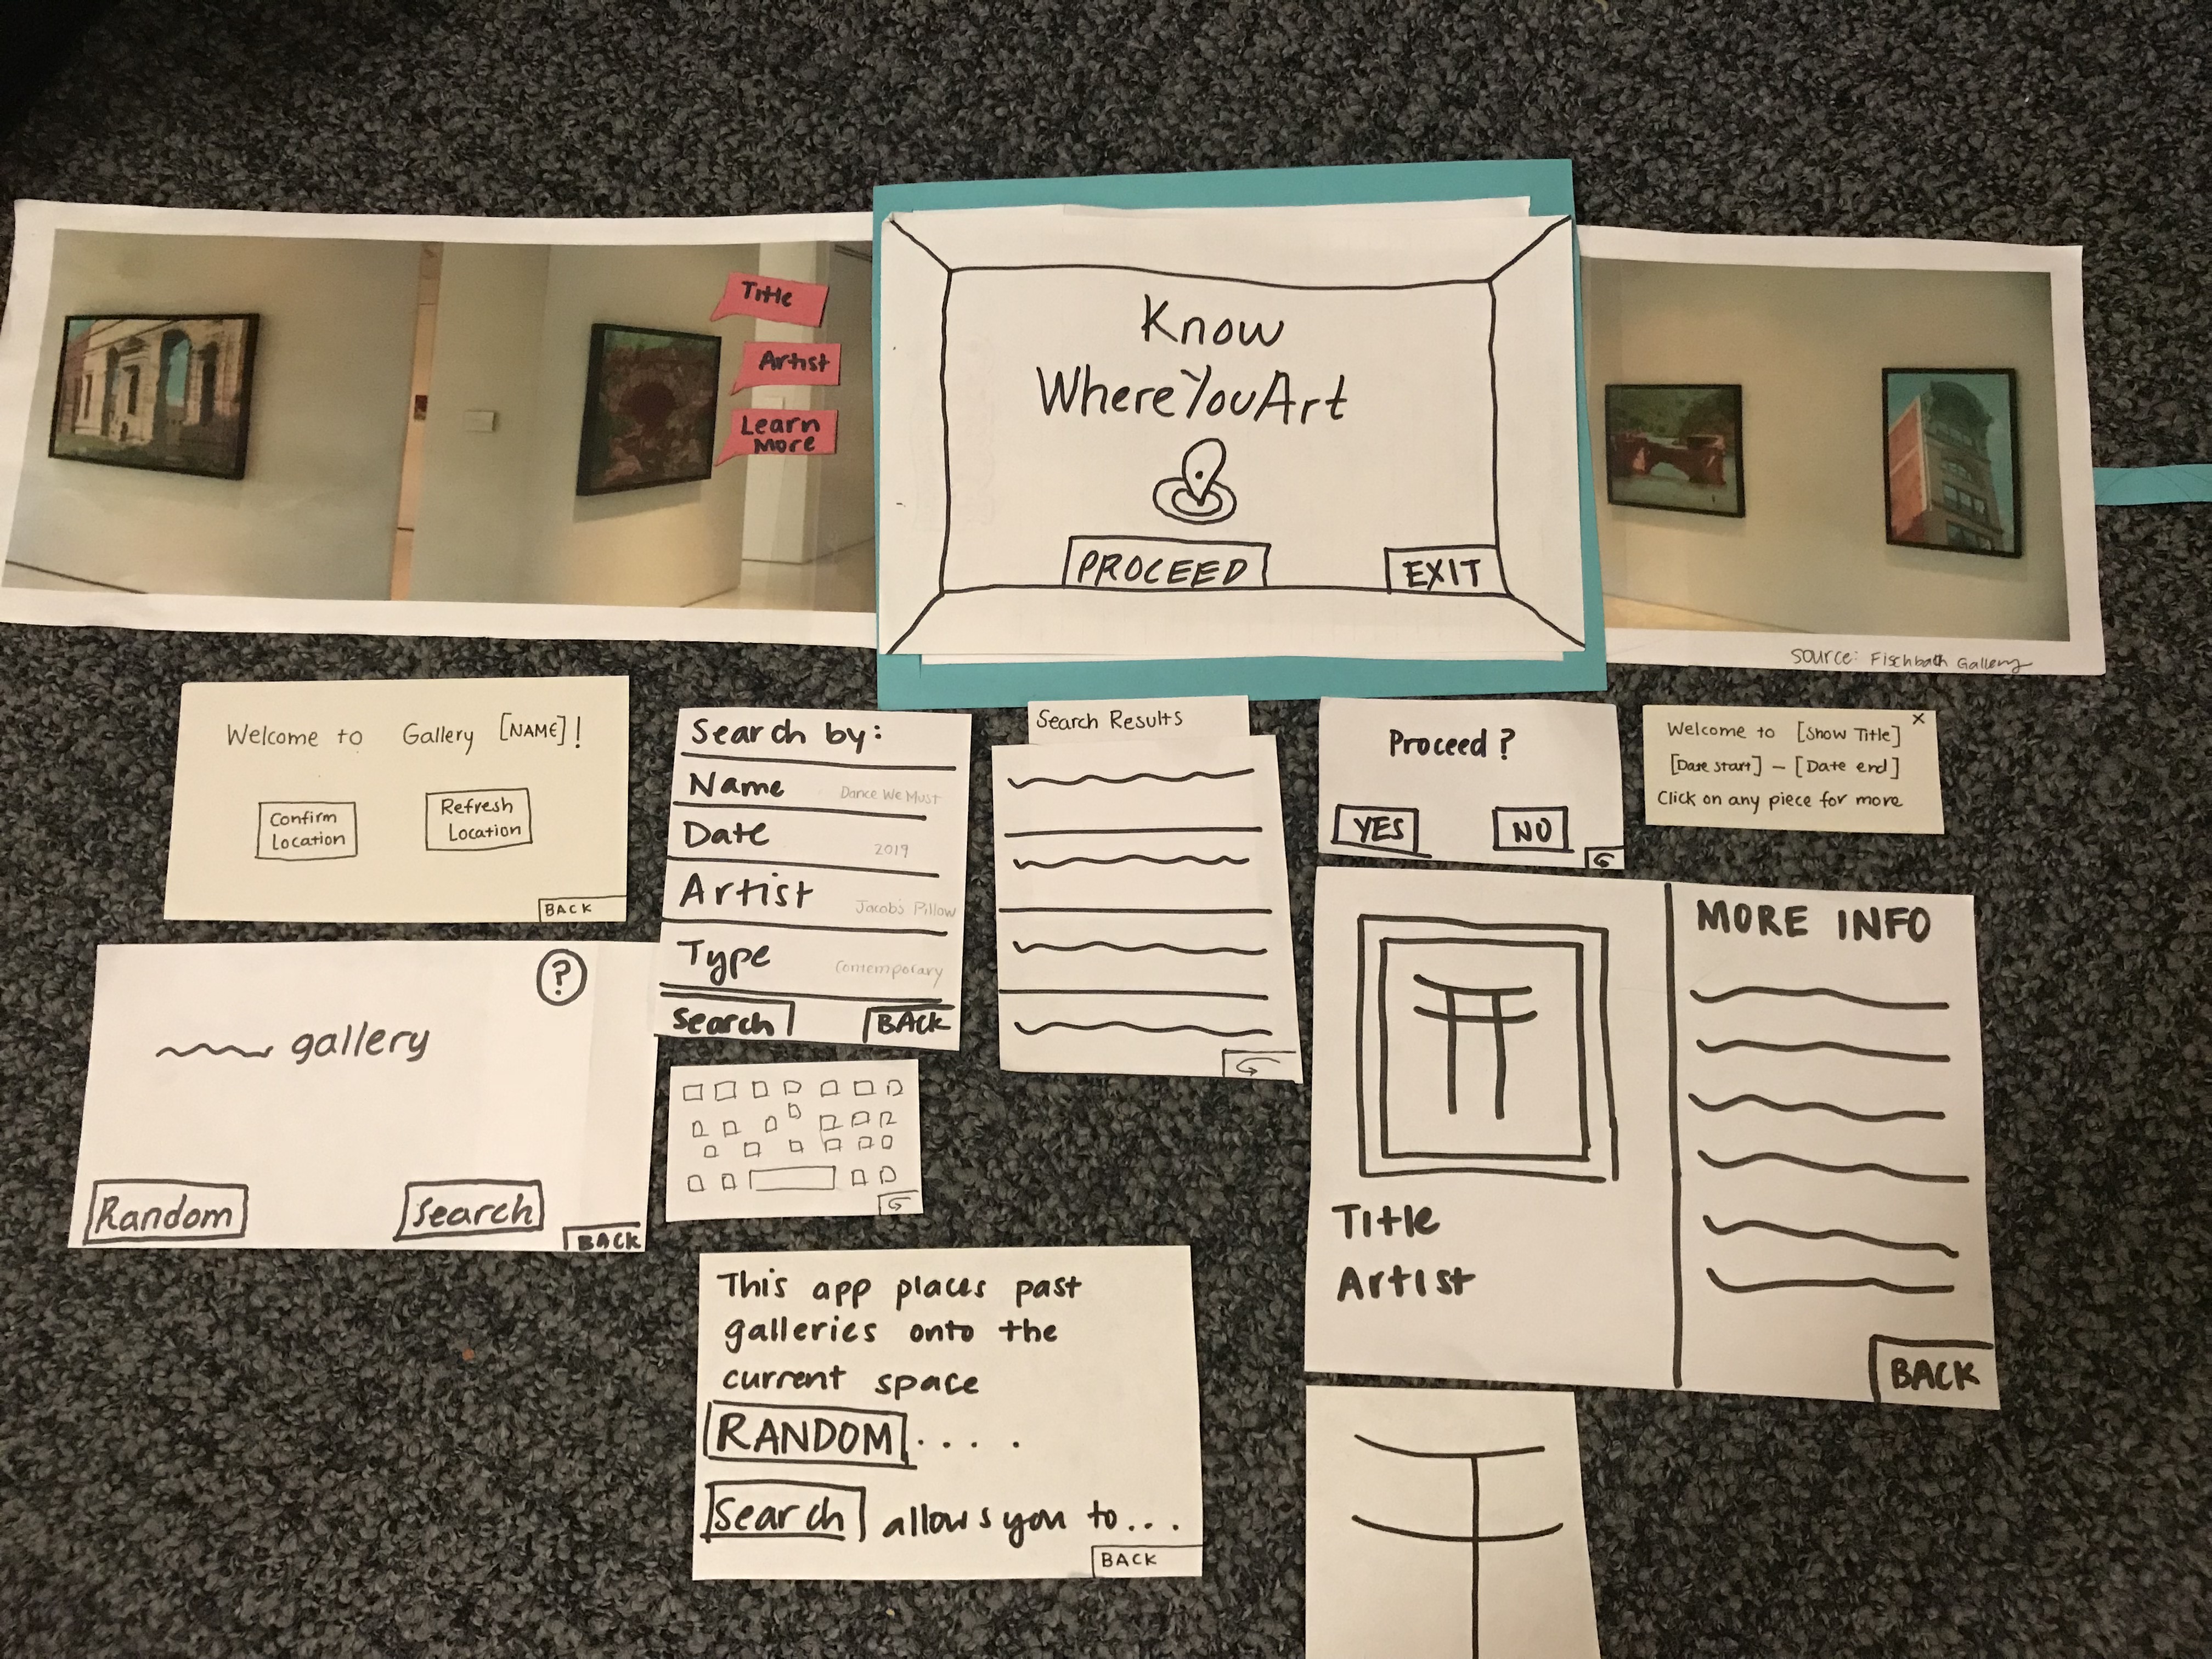 Title
Artist
Learn
More
Know
WhereYouArt
PROCEED
EXIT
Source: Fischbach Gallery
Welcome to Gallery [NAME]!
Confirm
Location
Refresh
Location
BACK
Search by:
Name Dance We Must
Date 2019
Artist Jacob's Pillow
Type Contemporary
Search BACK
Search Results
Proceed?
YES NO
Welcome to [Show Title] ×
[Date start] – [Date end]
Click on any piece for more
?
gallery
Random Search
BACK
MORE INFO
Title
Artist
BACK
This app places past
galleries onto the
current space
RANDOM . . . .
Search allows you to...
BACK